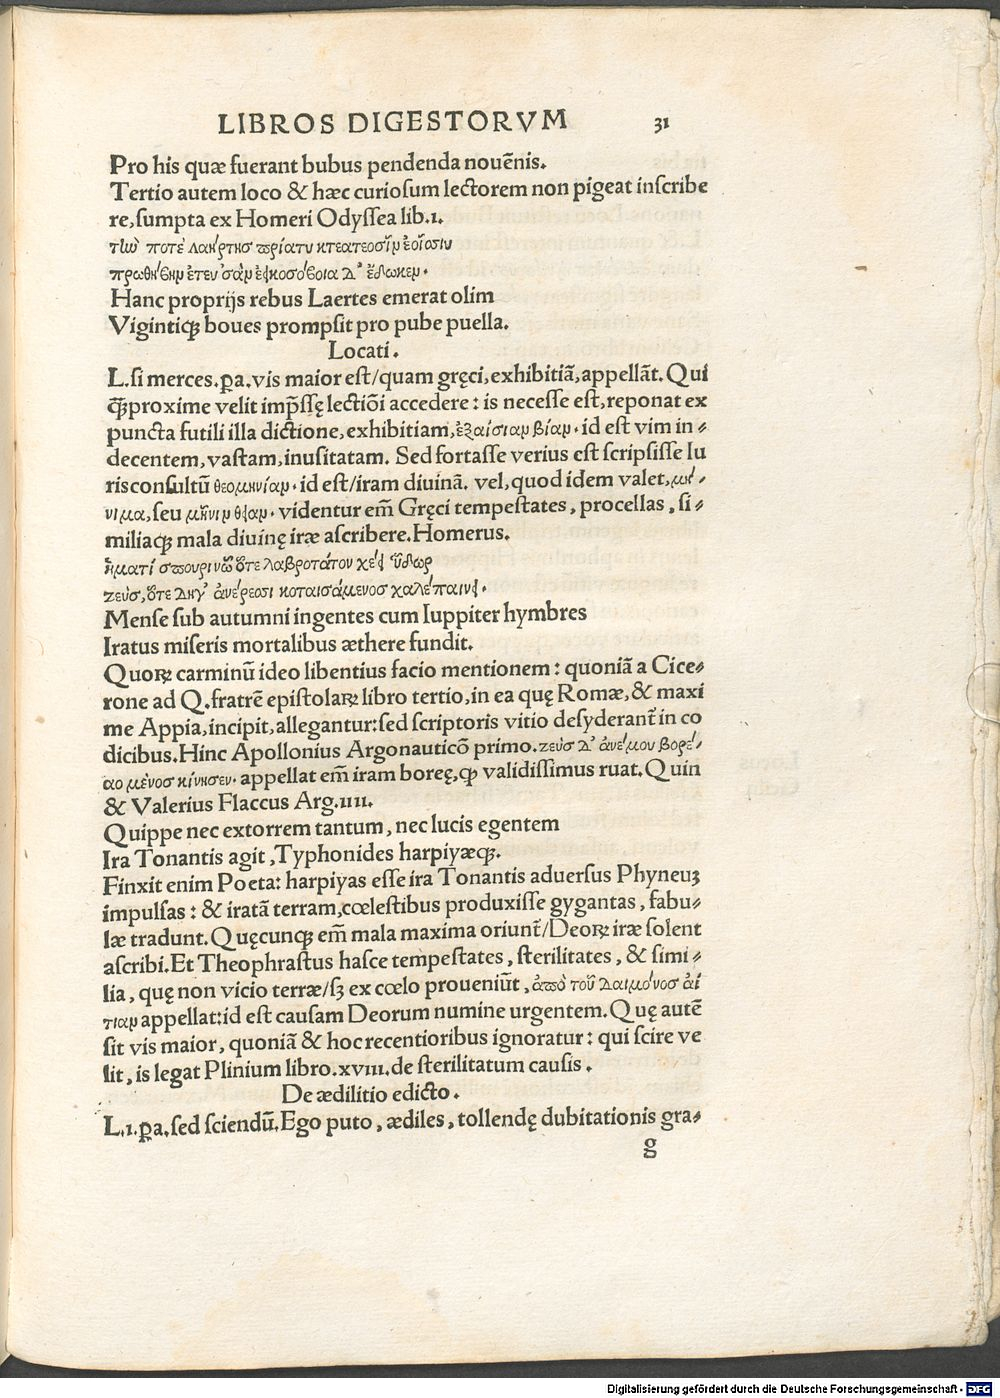 LIBROS DIGESTORVM 31
Pro his quæ fuerant bubus pendenda nouẽnis.
Tertio autem loco & hæc curiosum lectorem non pigeat inscribe
re, sumpta ex Homeri Odyssea lib.1.
τίω ποτὲ λαήρτης πρίατυ κτεάτεσσιν ἑοῖσιν
πρωθήβην ἔτευσαν ἐεικοσόβοια δ' ἔδωκεν.
Hanc proprijs rebus Laertes emerat olim
Vigintiqꝫ boues prompsit pro pube puella.
Locati.
L.si merces.ꝑa.vis maior est/quam gręci, exhibitiã, appellãt. Qui
ꝙꝫproxime velit imp̃ssę lectiõi accedere: is necesse est, reponat ex
puncta futili illa dictione, exhibitiam, ἐξαίσιαν βίαν. id est vim in-
decentem, vastam, inusitatam. Sed fortasse verius est scripsisse Iu
risconsultũ θεομηνίαν. id est/iram diuinã. vel, quod idem valet, μή-
νιμα, seu μῆνιν θείαν. videntur em̃ Gręci tempestates, procellas, si-
miliaqꝫ mala diuinę iræ ascribere. Homerus.
ἤματί σπουρινῷ ὅτε λαβρότατον χέει ὕδωρ
ζεύς, ὅτε δηγ' ἀνέρεσσι κοταισάμενος χαλέπαινει.
Mense sub autumni ingentes cum Iuppiter hymbres
Iratus miseris mortalibus æthere fundit.
Quoꝝ carminũ ideo libentius facio mentionem: quoniã a Cice-
rone ad Q.fratrẽ epistolaꝝ libro tertio, in ea quę Romæ, & maxi
me Appia, incipit, allegantur: sed scriptoris vitio desyderant̃ in co
dicibus. Hinc Apollonius Argonauticõ primo. ζεὺς δ' ἀνέμου βορέ-
αο μένος κίνησεν. appellat em̃ iram boreę, ꝙ validissimus ruat. Quin
& Valerius Flaccus Arg.IIII.
Quippe nec extorrem tantum, nec lucis egentem
Ira Tonantis agit, Typhonides harpiyæqꝫ.
Finxit enim Poeta: harpiyas esse ira Tonantis aduersus Phyneuꝫ
impulsas: & iratã terram, cœlestibus produxisse gygantas, fabu-
læ tradunt. Quęcunqꝫ em̃ mala maxima oriunt̃/Deoꝝ iræ solent
ascribi. Et Theophrastus hasce tempestates, sterilitates, & simi-
lia, quę non vicio terræ/sꝫ ex cœlo proueniũt, ἀπὸ τοῦ δαιμόνος αἰ
τίαν appellat: id est causam Deorum numine urgentem. Quę autẽ
sit vis maior, quoniã & hoc recentioribus ignoratur: qui scire ve
lit, is legat Plinium libro.xviii.de sterilitatum causis.
De ædilitio edicto.
L.1.ꝑa.sed sciendũ. Ego puto, ædiles, tollendę dubitationis gra-
g
Digitalisierung gefördert durch die Deutsche Forschungsgemeinschaft - DFG